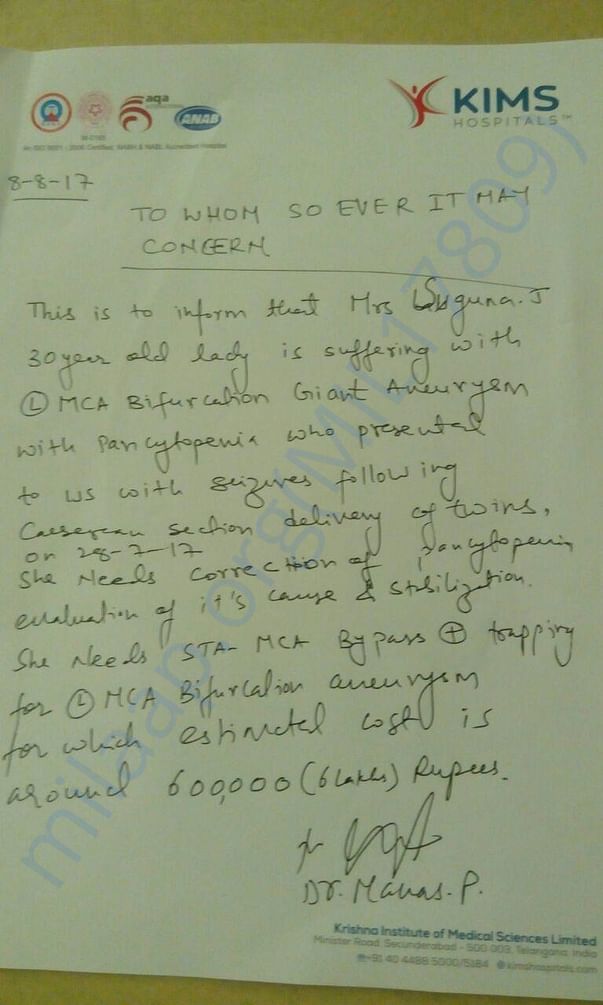 aqa
ANAB
M-0165
An ISO 9001 : 2008 Certified, NABH & NABL Accredited Hospital
KIMS
HOSPITALS™
8-8-17
TO WHOM SO EVER IT MAY
CONCERN
This is to inform that Mrs Suguna. J
30 year old lady is suffering with
Ⓛ MCA Bifurcation Giant Aneurysm
with Pancytopenia who presented
to us with seizures following
Caeserean section delivery of twins,
on 28-7-17
She Needs correction of pancytopenia
evaluation of it's cause & stabilization.
She Needs STA- MCA Bypass ⊕ trapping
for Ⓛ MCA Bifurcation aneurysm
for which estimated cost is
around 600,000 (6 Lakhs) Rupees.
Dr. Manas. P.
Krishna Institute of Medical Sciences Limited
Minister Road, Secunderabad - 500 003, Telangana, India
+91 40 4488 5000/5184 kimshospitals.com
milaap.org(MIL17809)